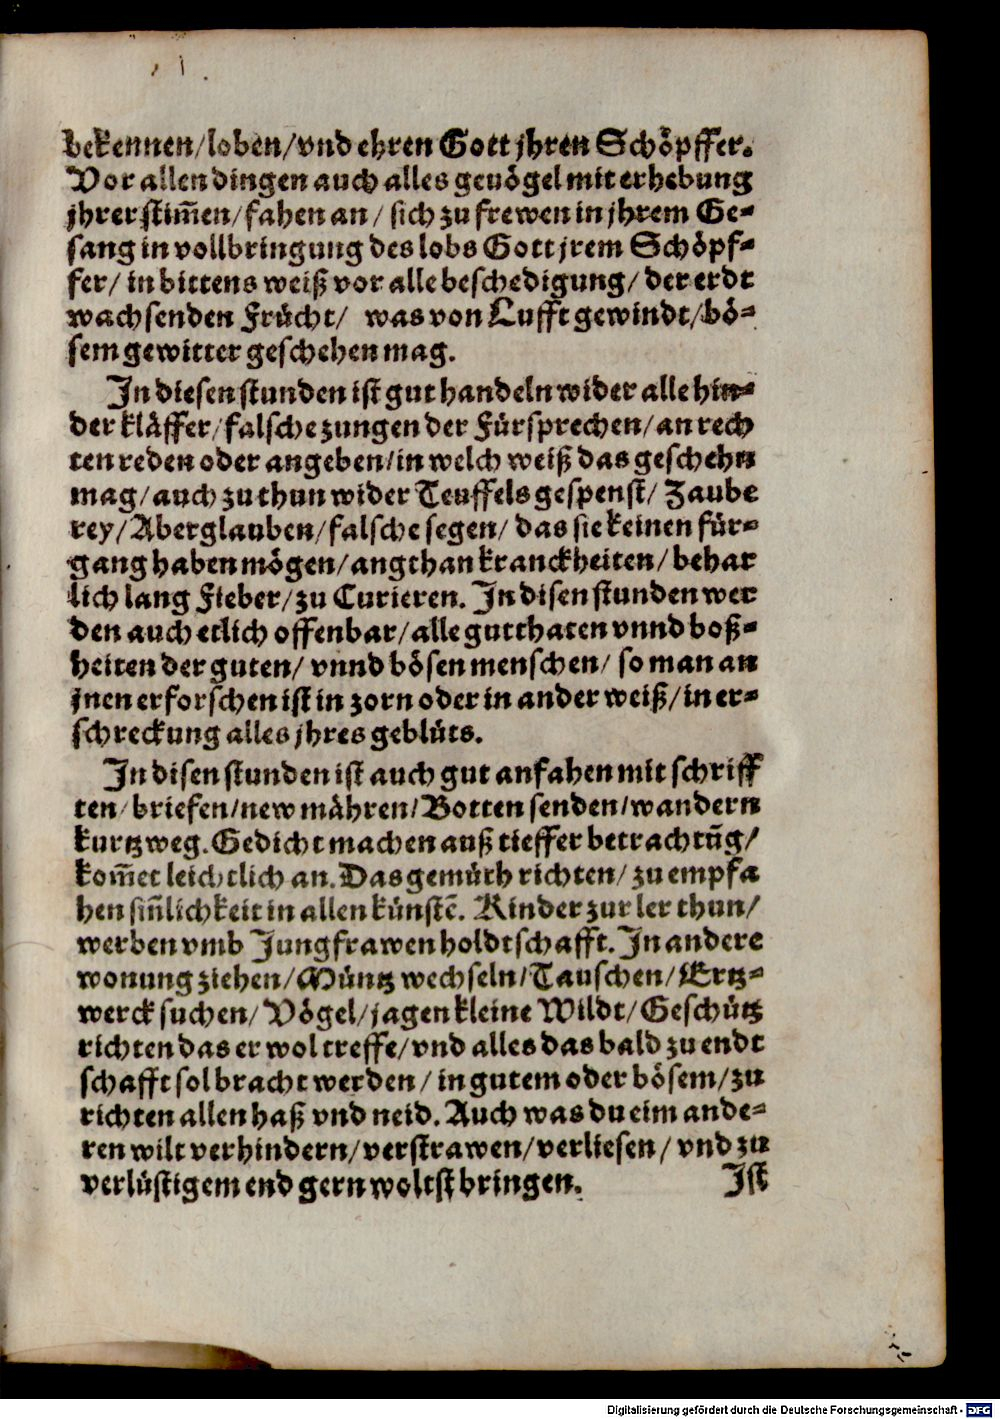 bekennen/loben/vnd ehren Gott jhren Schöpffer.
Vor allen dingen auch alles geuögel mit erhebung
jhrer stim̄en/fahen an/ sich zu frewen in jhrem Ge-
sang in vollbringung des lobs Gott jrem Schöpf-
fer/ in bittens weiß vor alle beschedigung/ der erdt
wachsenden Frücht/ was von Lufft gewindt/bö-
sem gewitter geschehen mag.
In diesen stunden ist gut handeln wider alle hin-
der kläffer/falsche zungen der Fürsprechen/an rech
ten reden oder angeben/in welch weiß das geschehn
mag/auch zu thun wider Teuffels gespenst/ Zaube
rey/Aberglauben/falsche segen/ das sie keinen für-
gang haben mögen/angthan kranckheiten/ behar
lich lang Fieber/zu Curieren. In disen stunden wer
den auch etlich offenbar/alle gutthaten vnnd boß-
heiten der guten/ vnnd bösen menschen/ so man an
jnen erforschen ist in zorn oder in ander weiß/in er-
schreckung alles jhres geblüts.
In disen stunden ist auch gut anfahen mit schriff
ten/briefen/new mähren/Botten senden/wandern
kurtz weg. Gedicht machen auß tieffer betrachtūg/
kom̄et leichtlich an. Das gemüth richten/ zu empfa
hen sin̄lichkeit in allen künstē. Kinder zur ler thun/
werben vmb Jungfrawen holdtschafft. In andere
wonung ziehen/Müntz wechseln/Tauschen/Ertz-
werck suchen/ Vögel/jagen kleine Wildt/Geschütz
richten das er wol treffe/vnd alles das bald zu endt
schafft sol bracht werden/ in gutem oder bösem/zu
richten allen haß vnd neid. Auch was du eim ande-
ren wilt verhindern/verstrawen/verliesen/ vnd zu
verlüstigem end gern woltst bringen.
Ist
Digitalisierung gefördert durch die Deutsche Forschungsgemeinschaft - DFG